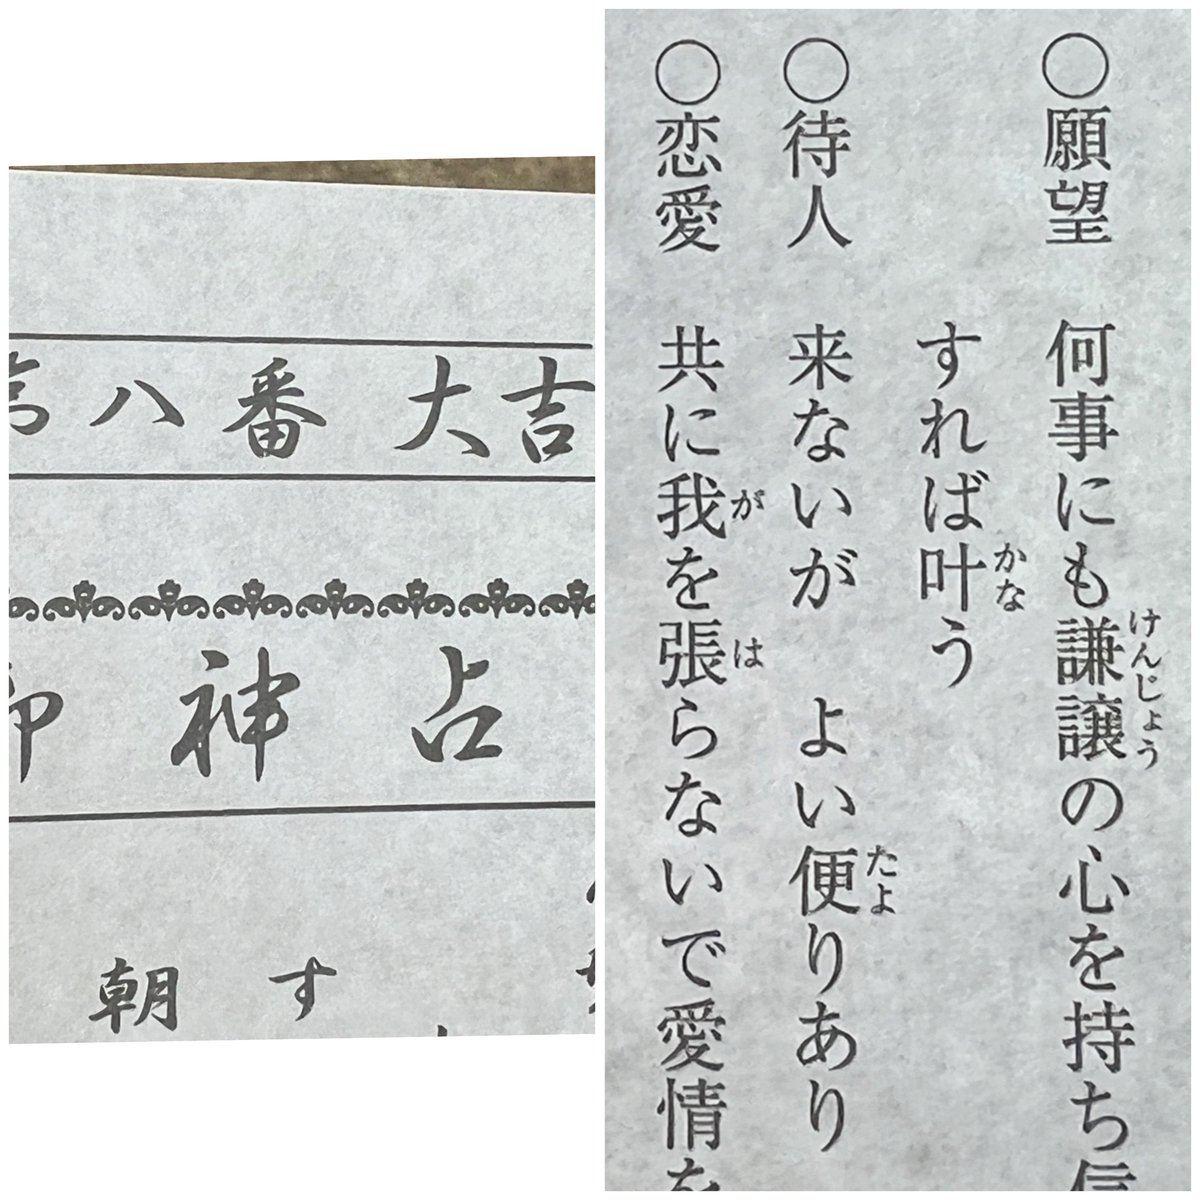 第八番 大吉
御神占
朝 す
○願望 何事にも謙譲の心を持ち信
けんじょう
すれば叶う
かな
○待人 来ないが よい便りあり
たよ
○恋愛 共に我を張らないで愛情を
が は